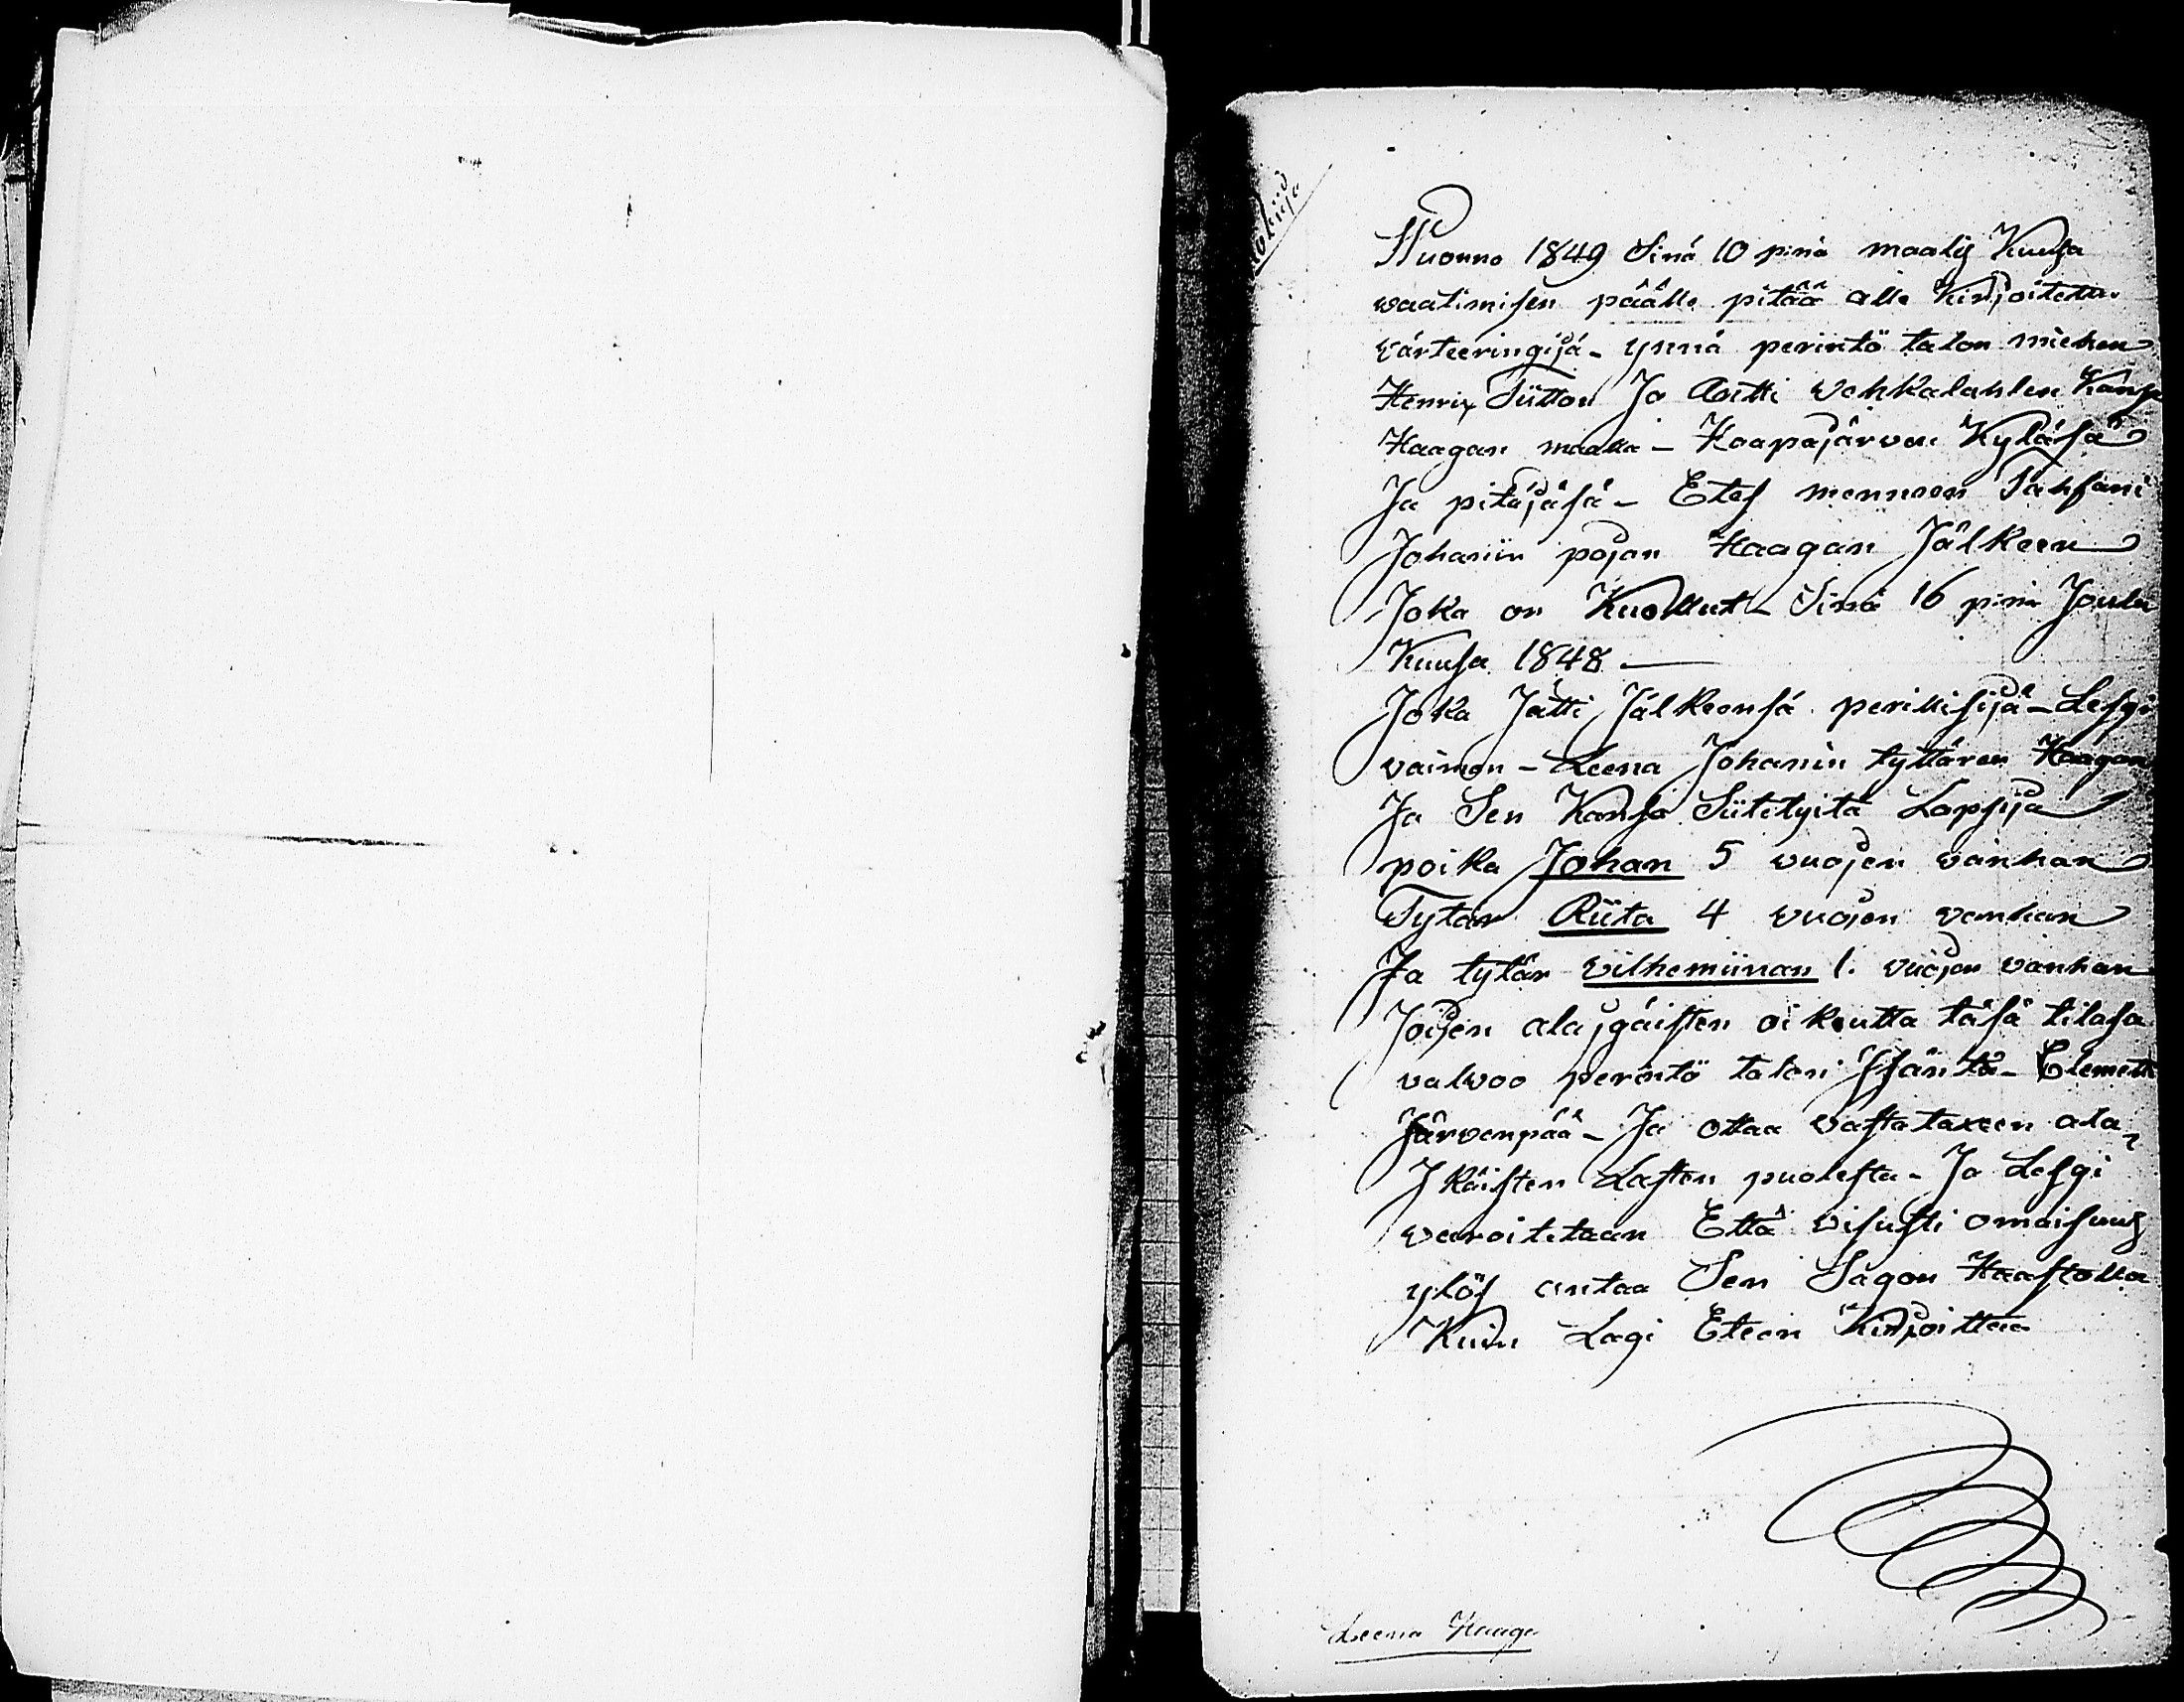 Wuonna 1849 Sinä 10 pnä maalis Kuusa
waatimisen päälle pitää alle Kirjoitettu
värteeringijä - ynnä perintö talon miehen
Henrix Tiitton Ja Antti wehkalahlen
Haagan maalla - Haapajärven Kyläsä
Ja pitäjäsä - Etes mennen
Johaniin pojan Haagan Jälkeen
Joka on Kuollut - Sinä 16 pnä Joulu
Kuusa 1848
Joka Jätti Jälkeensä perillisijä - Lesgi
vaimon - Leena Johanin tyttären Haagan
Ja Sen Kansa Siitetyitä Lapsija
poika Johan 5 vuojen vanhan
Tytär Riita 4 vuojen vanhan
Ja tytär vilhemiinan 1. vuojen vanhan
Joijen alajgäisten oikeutta täsä tilasa
valvoo perintö talon Isäntä - Elemetti
Järvenpää - Ja ottaa vastataxeen ala-
Jkäisten Lasten puolesta - Ja Lesgi
varoitetaan Että visusti omaisuus
ylös antaa Sen Sagon Haastolla
Kuin Lagi Eteen Kirjoittaa
Leena Haaga